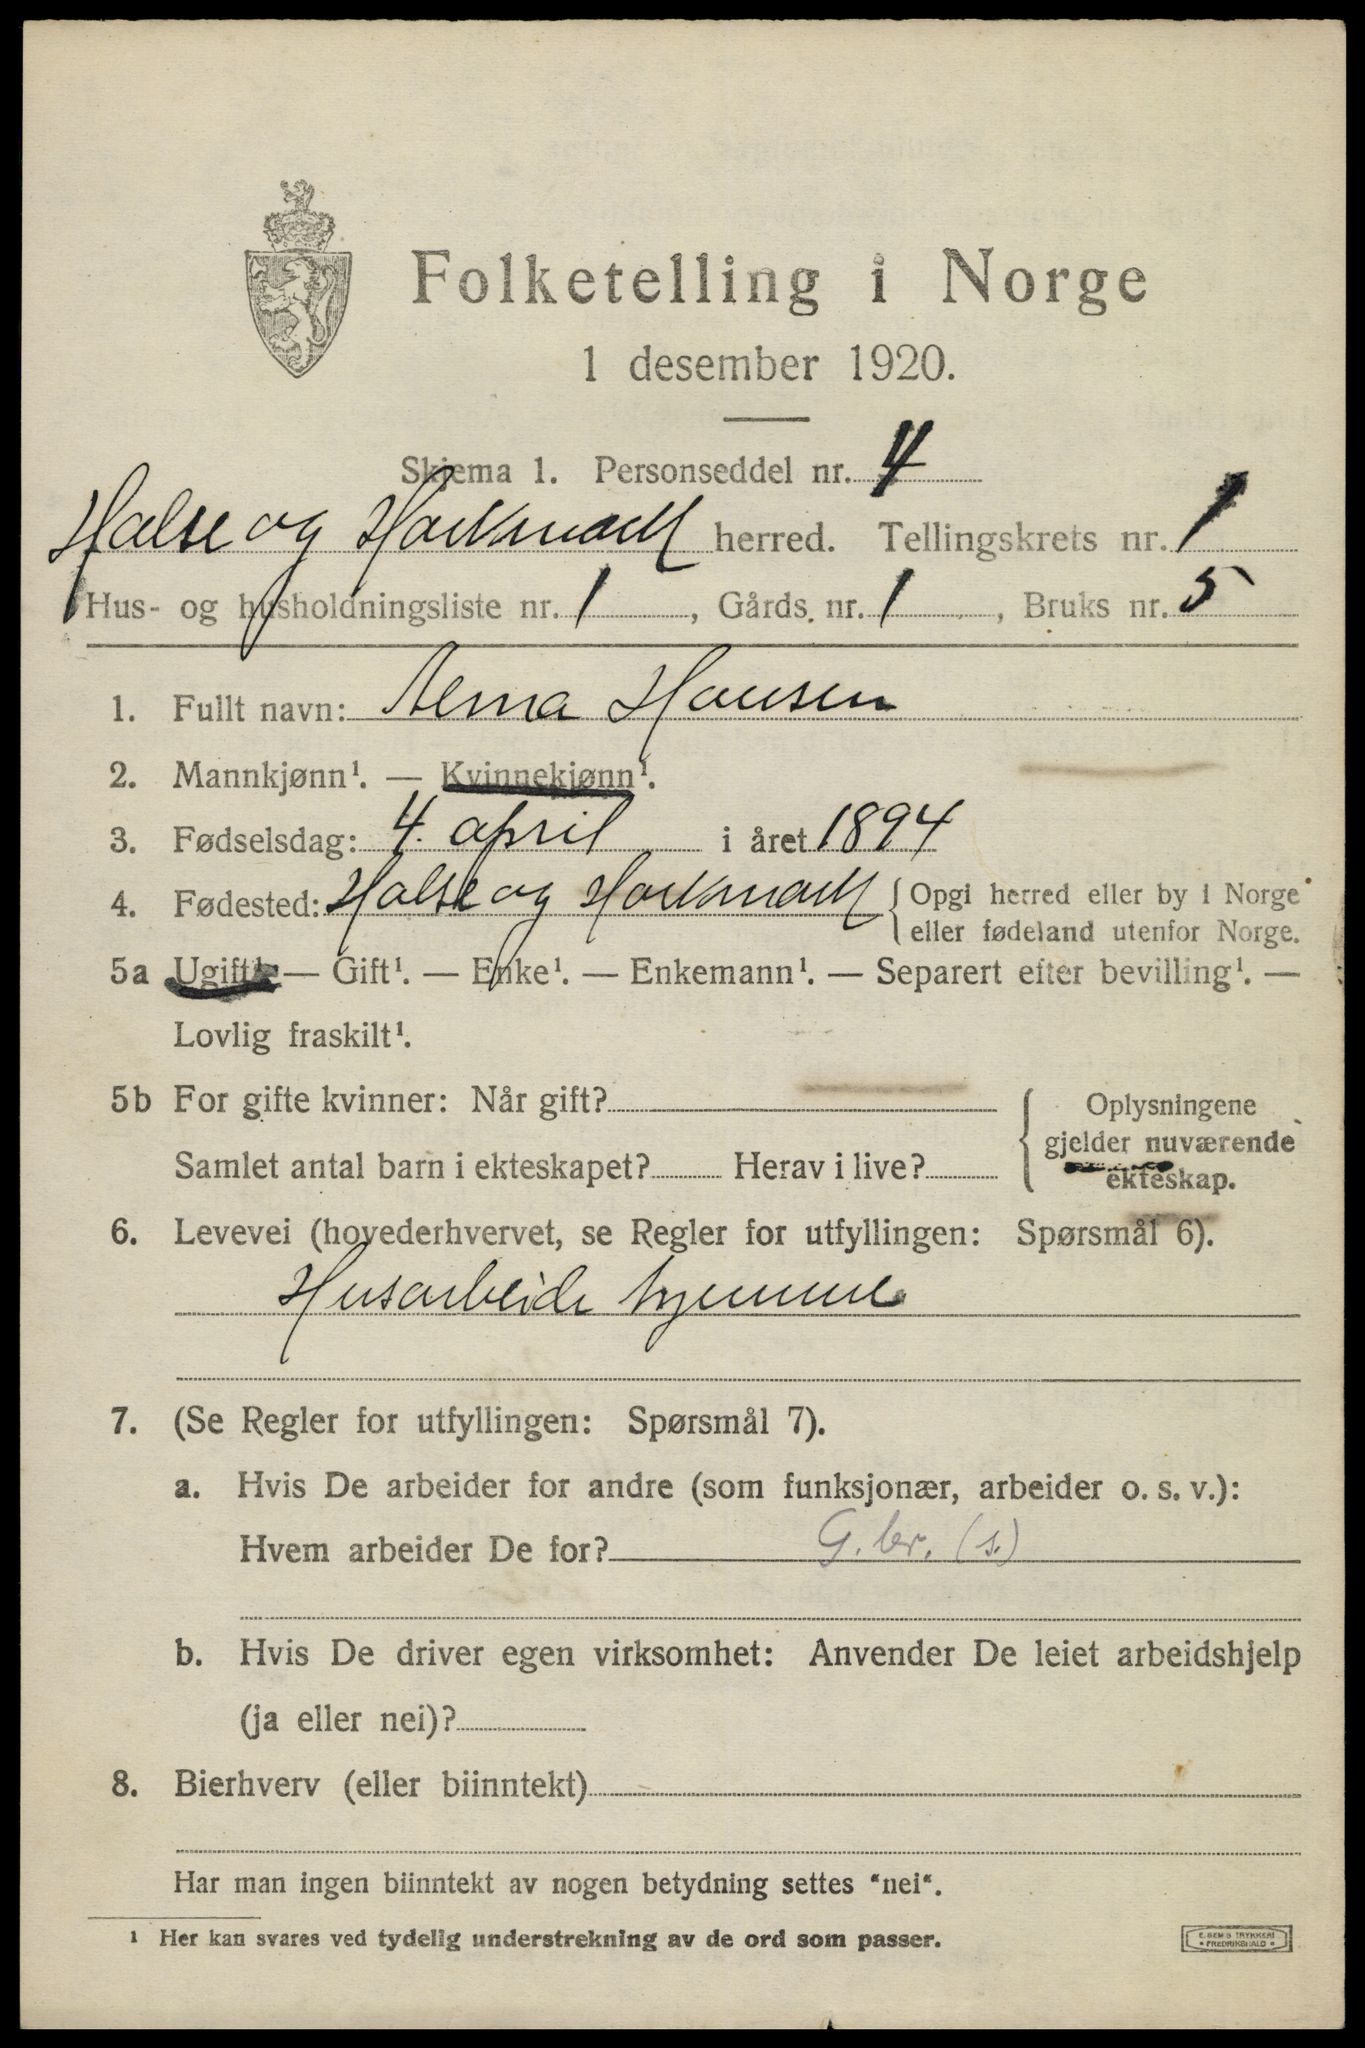 Folketelling i Norge
1 desember 1920.
Skjema 1. Personseddel nr. 4
Halse og Harkmark herred. Tellingskrets nr. 1
Hus- og husholdningsliste nr. 1, Gårds nr. 1, Bruks nr. 5
1. Fullt navn: Alma Hansen
2. Mannkjønn¹. — Kvinnekjønn¹.
3. Fødselsdag: 4. april i året 1894
4. Fødested: Halse og Harkmark { Opgi herred eller by i Norge
eller fødeland utenfor Norge.
5a Ugift¹. — Gift¹. — Enke¹. — Enkemann¹. — Separert efter bevilling¹. —
Lovlig fraskilt¹.
5b For gifte kvinner: Når gift?
Samlet antal barn i ekteskapet? Herav i live?
{ Oplysningene
gjelder nuværende
ekteskap.
6. Levevei (hovederhvervet, se Regler for utfyllingen: Spørsmål 6).
Husarbeide hjemme
7. (Se Regler for utfyllingen: Spørsmål 7).
a. Hvis De arbeider for andre (som funksjonær, arbeider o. s. v.):
Hvem arbeider De for? G. br. (s.)
b. Hvis De driver egen virksomhet: Anvender De leiet arbeidshjelp
(ja eller nei)?
8. Bierhverv (eller biinntekt)
Har man ingen biinntekt av nogen betydning settes "nei".
¹ Her kan svares ved tydelig understrekning av de ord som passer.
E. SEM'S TRYKKERI
• FREDRIKSHALD •